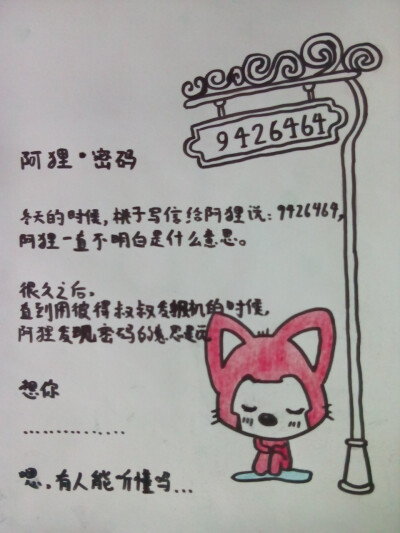 9426464
阿狸·密码
冬天的时候,桃子写信给阿狸说:9426464,
阿狸一直不明白是什么意思。
很久之后,
直到用彼得叔叔发报机的时候,
阿狸发现密码的意思是说
想你
..............
嗯,有人能听懂吗...